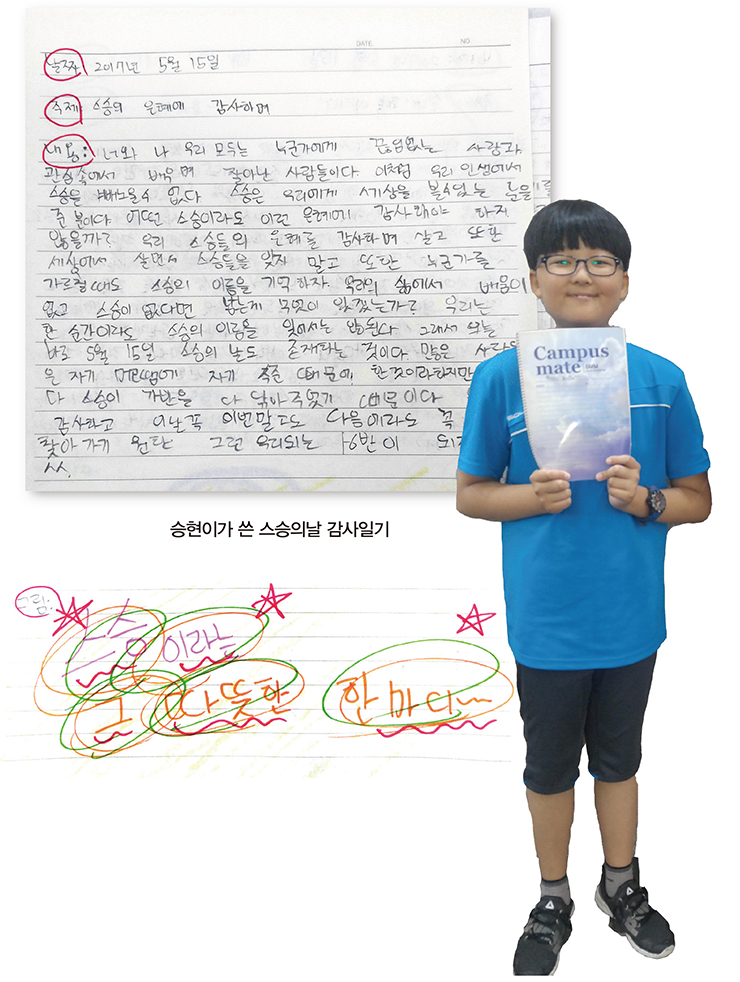 DATE. NO.
날짜 2017년 5월 15일
주제 스승의 은혜에 감사하며
내용: 너와 나 우리 모두는 누군가에게 끊임없는 사랑과
관심속에서 배우며 자라난 사람들이다. 이처럼 우리 인생에서
스승을 빼놓을수 없다 스승은 우리에게 세상을 볼수있는 눈을
준 분이다. 어떤 스승이라도 이런 은혜에 감사해야 하지
않을까? 우리 스승들의 은혜를 감사하며 살고 또한
세상에서 살면서 스승들을 잊지 말고 또한 누군가를
가르칠때도 스승의 이름을 기억하자. 우리의 삶에서 배움이
없고 스승이 없다면 남는게 무엇이 있겠는가? 우리는
한 순간이라도 스승의 이름을 잊어서는 안된다 그래서 오늘
바로 5월 15일 스승의 날도 존재하는 것이다 많은
은 자기 자기 때문에 한것이라하지만
다 스승이 다 때문이다
감사하고 이번말고도 다음에라도 꼭
찾아가기 원한다 그런 우리되는 6반이
승현이가 쓴 스승의날 감사일기
그림:
스승이라는
그 따뜻한 한마디~
Campus
mate